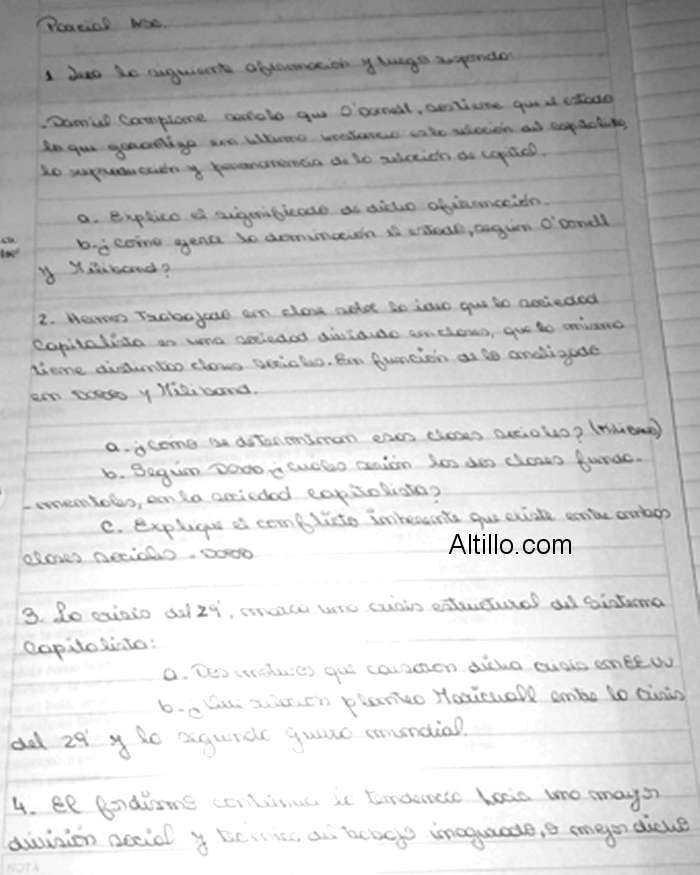 Parcial
1 Lea la siguiente afirmación y luego responda:
- Daniel Campione señala que O'Donell, sostiene que el estado
lo que garantiza en última instancia es la relación del capitalista,
la reproducción y permanencia de la relación de capital.
a. Explica el significado de dicha afirmación.
b. ¿Cómo ejerce la dominación el estado, según O'Donell
y Miliband?
2. Hemos Trabajado en clase sobre la idea que la sociedad
Capitalista es una sociedad dividida en clases, que la misma
tiene distintas clases sociales. En función de lo analizado
en Dobb y Miliband.
a. ¿Cómo se determinan esas clases sociales? (Miliband)
b. Según Dobb ¿cuales serían las dos clases funda-
-mentales, en la sociedad capitalista?
c. Explique el conflicto inherente que existe entre ambas
clases sociales - Dobb
Altillo.com
3. La crisis del 29', marca una crisis estructural del sistema
Capitalista:
a. Dos motivos que causaron dicha crisis en EE UU
b. ¿Qué relación planteo entre la crisis
del 29' y la segunda guerra mundial.
4. El fordismo continua la tendencia hacia una mayor
división social y técnica del trabajo o mejor dicho
NOTA